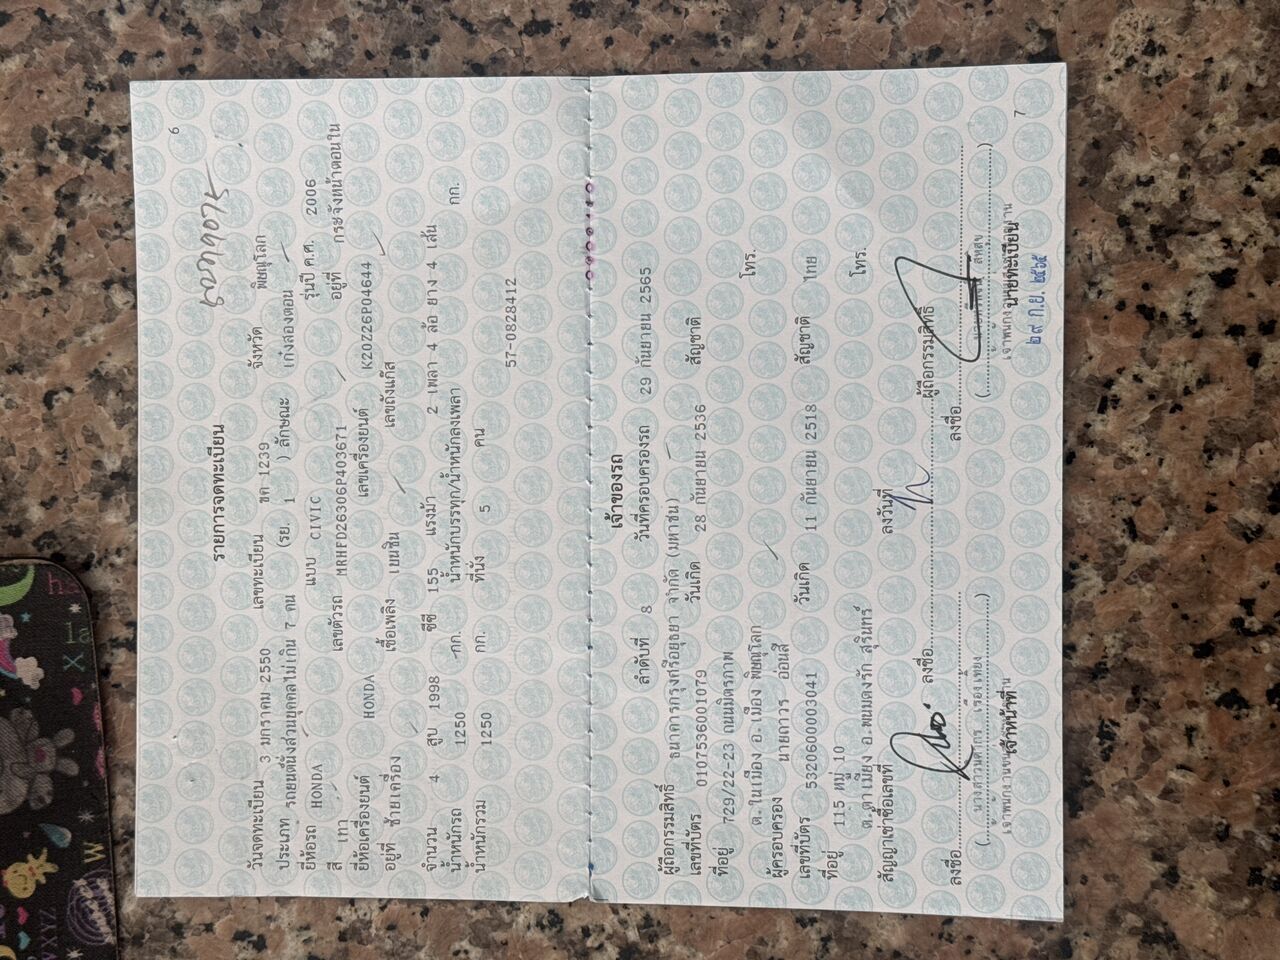 6
รายการจดทะเบียน
วันจดทะเบียน 3 มกราคม 2550 เลขทะเบียน ขต 1239 จังหวัด พิษณุโลก
ประเภท รถยนต์นั่งส่วนบุคคลไม่เกิน 7 คน (รย. 1 ) ลักษณะ เก๋งสองตอน
ยี่ห้อรถ HONDA แบบ CIVIC รุ่นปี ค.ศ. 2006
สี เทา เลขตัวรถ MRHFD26306P403671 อยู่ที่ กระจังหน้าตอนใน
ยี่ห้อเครื่องยนต์ HONDA เลขเครื่องยนต์ K20Z26P04644
อยู่ที่ ซ้ายเครื่อง เชื้อเพลิง เบนซิน เลขถังแก๊ส
จำนวน 4 สูบ 1998 ซีซี 155 แรงม้า 2 เพลา 4 ล้อ ยาง 4 เส้น
น้ำหนักรถ 1250 กก. น้ำหนักบรรทุก/น้ำหนักลงเพลา กก.
น้ำหนักรวม 1250 กก. ที่นั่ง 5 คน
57-0828412
เจ้าของรถ
ลำดับที่ 8 วันที่ครอบครองรถ 29 กันยายน 2565
ผู้ถือกรรมสิทธิ์ ธนาคารกรุงศรีอยุธยา จำกัด (มหาชน)
เลขที่บัตร 0107536001079 วันเกิด 28 กันยายน 2536 สัญชาติ
ที่อยู่ 729/22-23 ถนนมิตรภาพ
ต.ในเมือง อ.เมือง พิษณุโลก โทร.
ผู้ครอบครอง นายถาวร อ่อนสี
เลขที่บัตร 5320600003041 วันเกิด 11 กันยายน 2518 สัญชาติ ไทย
ที่อยู่ 115 หมู่ 10
ต.ตาเมียง อ.พนมดงรัก สุรินทร์ โทร.
สัญญาเช่าซื้อเลขที่ ลงวันที่
ลงชื่อ ผู้ถือกรรมสิทธิ์
ลงชื่อ ลงชื่อ
เจ้าหน้าที่ นายทะเบียน
๒๙ ก.ย. ๒๕๖๕
7